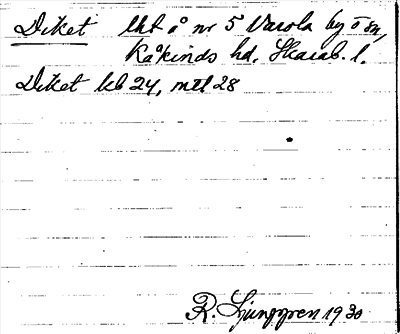 Diket lht å nr 5 Varola by o sn,
Kåkinds hd, Skarab. l.
Diket kb 24, mtl 28
R. Ljunggren 1930